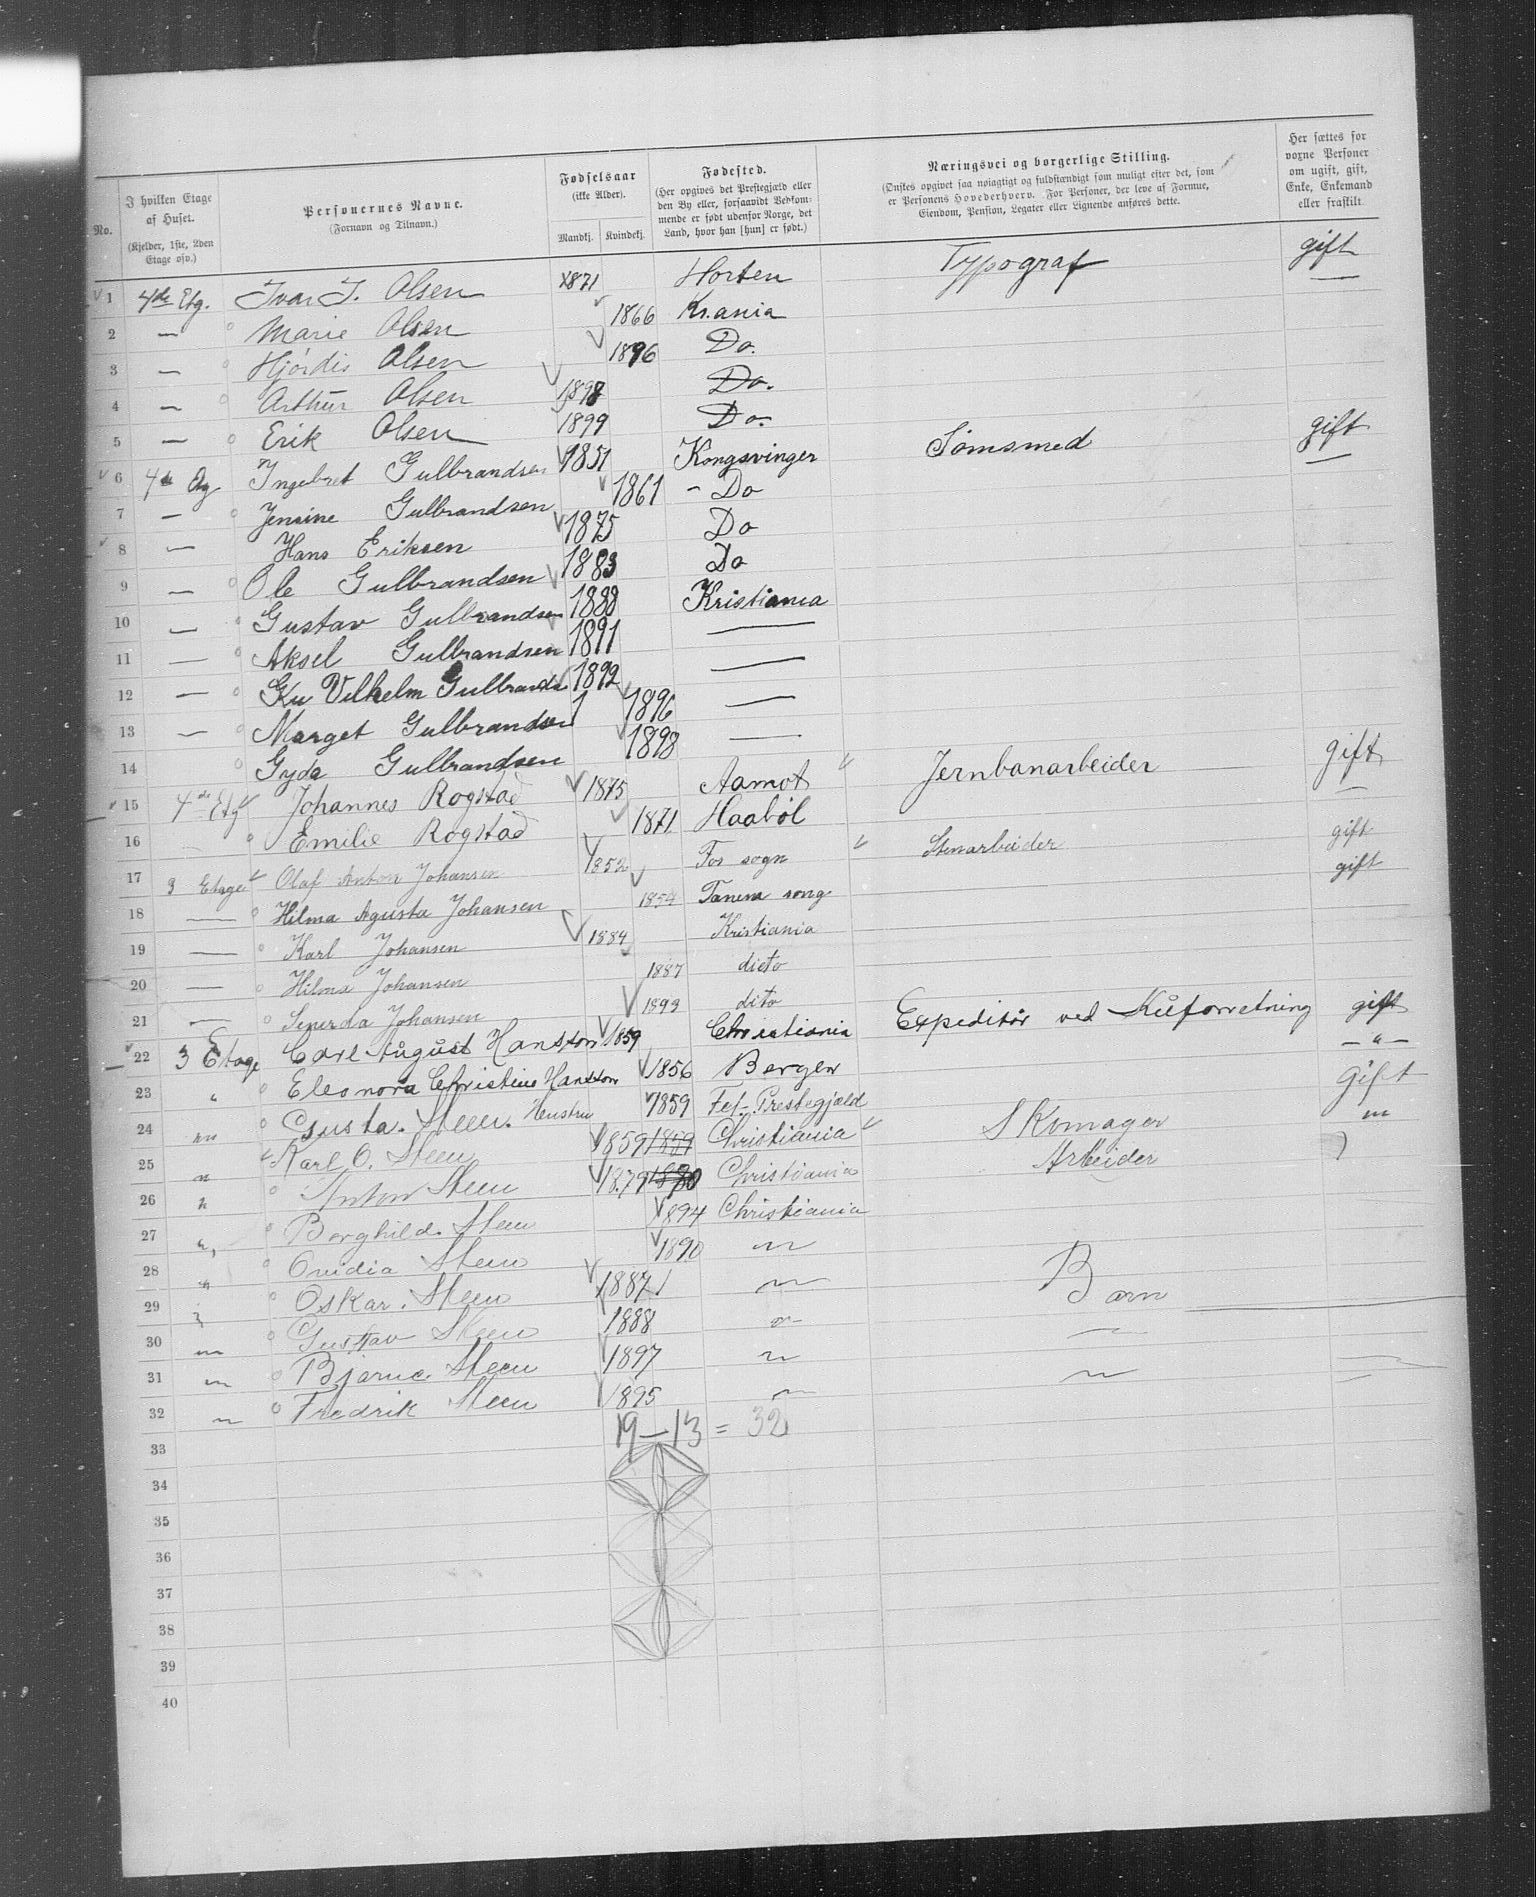 No. | I hvilken Etage af Huset. (Kjelder, 1ste, 2den Etage osv.) | Personernes Navne. (Fornavn og Tilnavn.) | Fødselsaar (ikke Alder). Mandkj. Kvindekj. | Fødested. (Her opgives det Prestegjæld eller den By eller, forsaavidt Vedkommende er født udenfor Norge, det Land, hvor han [hun] er født.) | Næringsvei og borgerlige Stilling. (Ønskes opgivet saa nøiagtigt og fuldstændigt som muligt efter det, som er Personens Hovederhverv. For Personer, der leve af Formue, Eiendom, Pension, Legater eller Lignende anføres dette. | Her sættes for voxne Personer om ugift, gift, Enke, Enkemand eller fraskilt.
1 4de Etg. Ivar J. Olsen 1871 Horten Typograf gift
2 — Marie Olsen 1866 Kr.ania —
3 — Hjördis Olsen 1896 Do.
4 — Arthur Olsen 1898 Do.
5 — Erik Olsen 1899 Do.
6 4de Etg Ingebret Gulbrandsen 1851 Kongsvinger Sömsmed gift
7 — Jensine Gulbrandsen 1861 - Do —
8 — Hans Eriksen 1875 Do
9 — Ole Gulbrandsen 1883 Do
10 — Gustav Gulbrandsen 1888 Kristiania
11 — Aksel Gulbrandsen 1891 —
12 — Vilhelm Gulbrandsen 1892 —
13 — Marget Gulbrandsen 1896 —
14 Gyda Gulbrandsen 1898 —
15 4de Etg Johannes Rogstad 1875 Aamot Jernbanarbeider gift
16 — Emilie Rogstad 1871 Haaböl —
17 3 Etage Olaf Anton Johansen 1852 Fos sogn Stenarbeider gift
18 — Hilma Agusta Johansen 1854 Tanem song gift
19 — Karl Johansen 1884 Kristiania
20 — Hilma Johansen 1887 dieto
21 — Johansen 1893 dito
22 3 Etage Carl August Hanston 1859 Christiania Expeditör ved gift
23 " Eleonora Christine Hanston 1856 Bergen — " —
24 " Gusta. Steen. Heustru 1859 Fet- Prestegjæld Gift
25 " Karl O. Steen 1859 1859 Christiania Skomager "
26 " Anton Steen 1879 1880 Christiania Arbeider
27 " Borghild. Steen 1894 Christiania
28 " Ovidia Steen 1890 "
29 " Oskar. Steen 1887 " Barn
30 " Gustav Steen 1888 " —
31 " Bjarne. Steen 1897 " "
32 " Fredrik Steen 1895 "
33 19 — 13 = 32
34
35
36
37
38
39
40